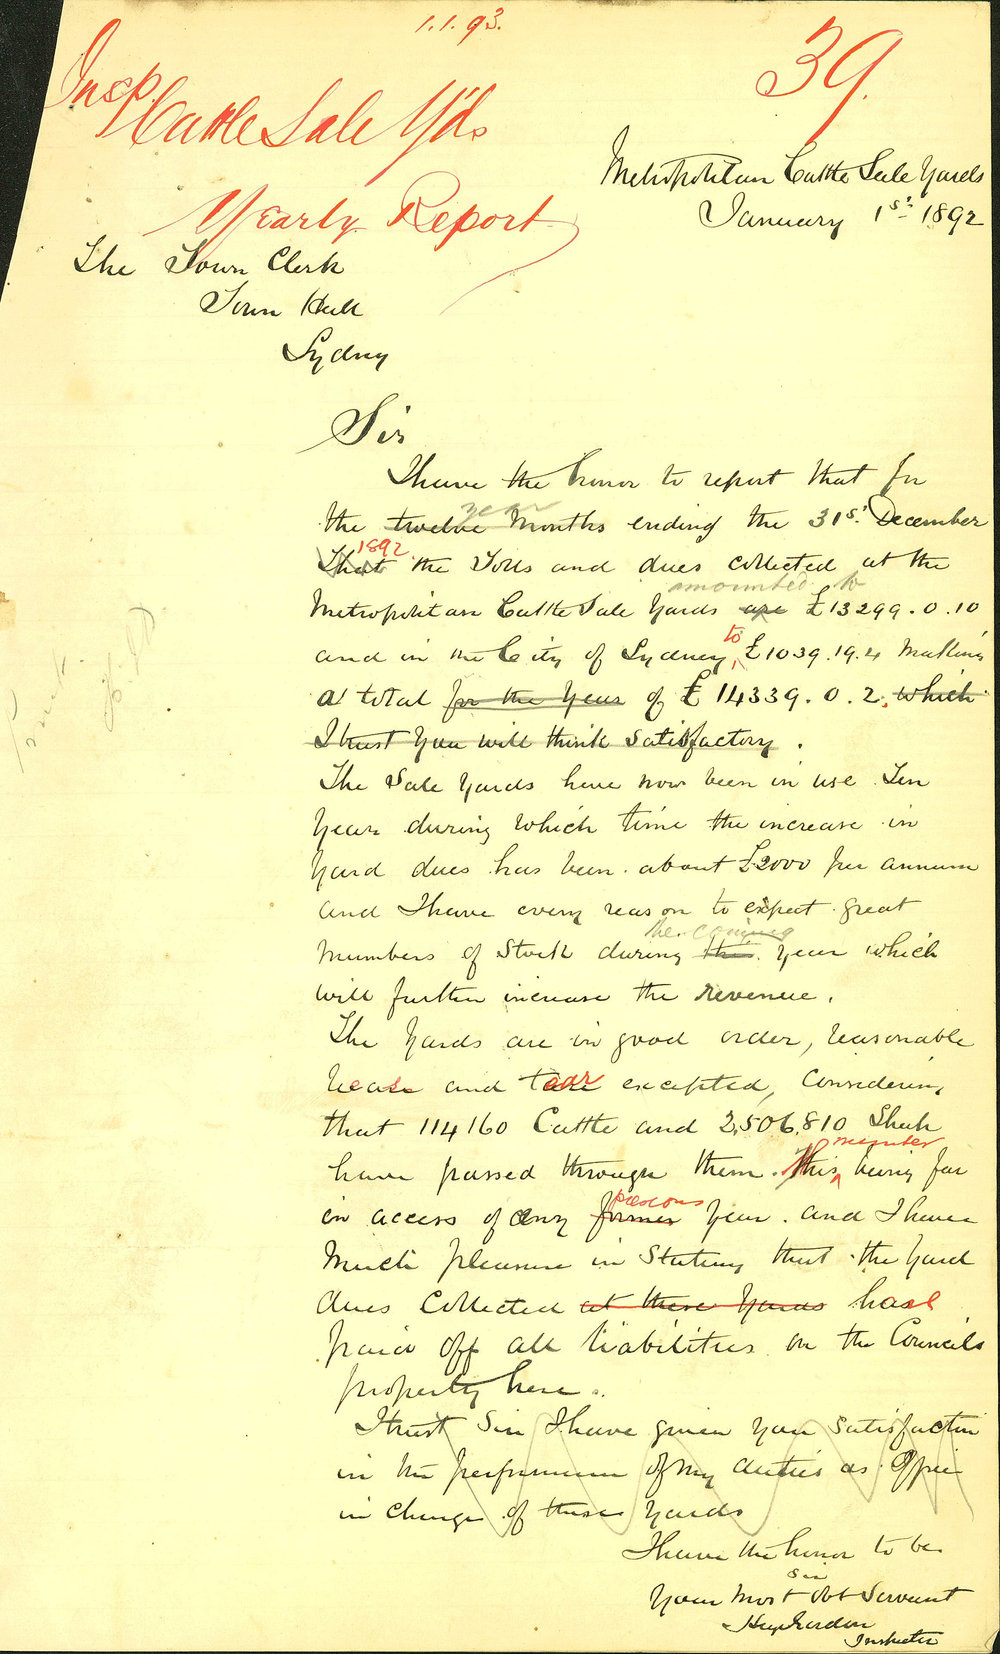 1.1.93.
39.
Insp.
Cattle Sale Yds
Yearly Report
Metropolitan Cattle Sale Yards
January 1st 1892
The Town Clerk
Town Hall
Sydney
Sir
I have the honor to report that for
year
the twelve Months ending the 31st December
1892
That the Tolls and dues collected at the
amounted to
Metropolitan Cattle Sale Yards are £13299.0.10
to
and in the City of Sydney £1039.19.4 Making
a total for the Year of £14339.0.2, which
I trust You will think Satisfactory.
The Sale Yards have now been in use Ten
Years during which time the increase in
Yard dues has been about £2000 per annum
and I have every reason to expect great
the coming
numbers of Stock during this Year which
will further increase the revenue.
The Yards are in good order, reasonable
wear and tear excepted, Considering
that 114160 Cattle and 2,506,810 Sheep
number
have passed through them. This being far
previous
in access of any former Year. and I have
Much pleasure in Stating that the Yard
dues Collected at these Yards has
paid off all liabilities on the Councils
property here.
I trust Sir I have given you Satisfaction
in the performance of my duties as Officer
in charge of these Yards
I have the honor to be
Sir
Your Most Obt Servant
Hugh Gordon
Inspector